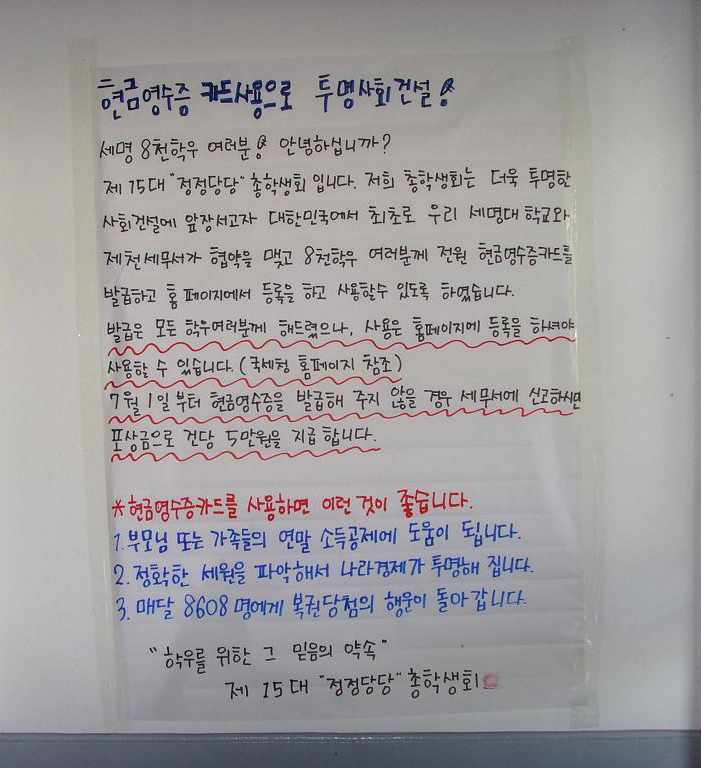 현금영수증 카드사용으로 투명사회건설!
세명 8천학우 여러분! 안녕하십니까?
제 15대 "정정당당" 총학생회 입니다. 저희 총학생회는 더욱 투명한
사회건설에 앞장서고자 대한민국에서 최초로 우리 세명대 학교와
제천세무서가 협약을 맺고 8천학우 여러분께 전원 현금영수증카드를
발급하고 홈페이지에서 등록을 하고 사용할수 있도록 하였습니다.
발급은 모든 학우여러분께 해드렸으나, 사용은 홈페이지에 등록을 하셔야
사용할 수 있습니다. (국세청 홈페이지 참조)
7월 1일 부터 현금영수증을 발급해 주지 않을 경우 세무서에 신고하시면
포상금으로 건당 5만원을 지급합니다.
*현금영수증카드를 사용하면 이런 것이 좋습니다.
1. 부모님 또는 가족들의 연말 소득공제에 도움이 됩니다.
2. 정확한 세원을 파악해서 나라경제가 투명해 집니다.
3. 매달 8608명에게 복권당첨의 행운이 돌아갑니다.
"학우를 위한 그 믿음의 약속"
제 15대 "정정당당" 총학생회